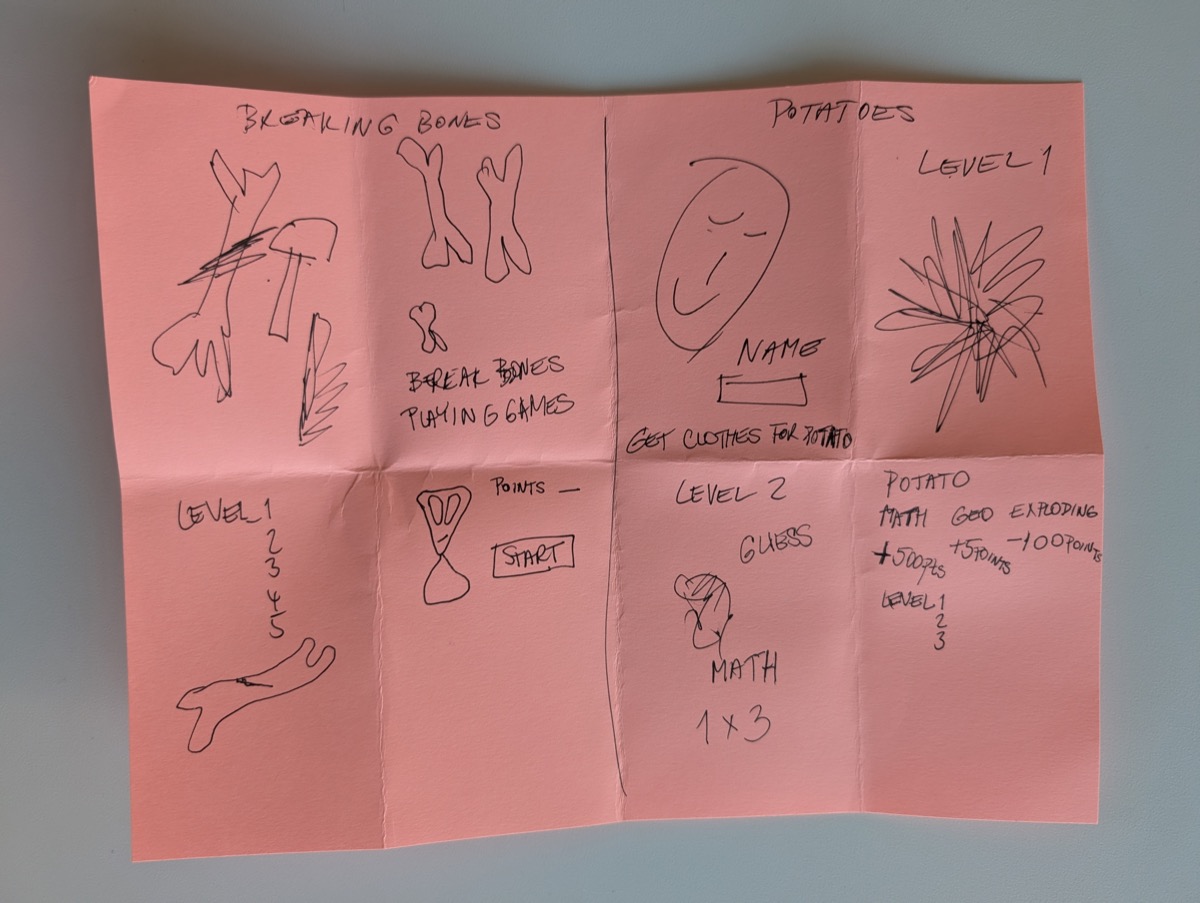 BREAKING BONES
BREAK BONES
PLAYING GAMES
LEVEL 1
2
3
4
5
POINTS _
START
POTATOES
NAME
GET CLOTHES FOR POTATO
LEVEL 1
LEVEL 2
GUESS
MATH
1 x 3
POTATO
MATH GEO EXPLODING
+500pts +5POINTS -100POINTS
LEVEL 1
2
3